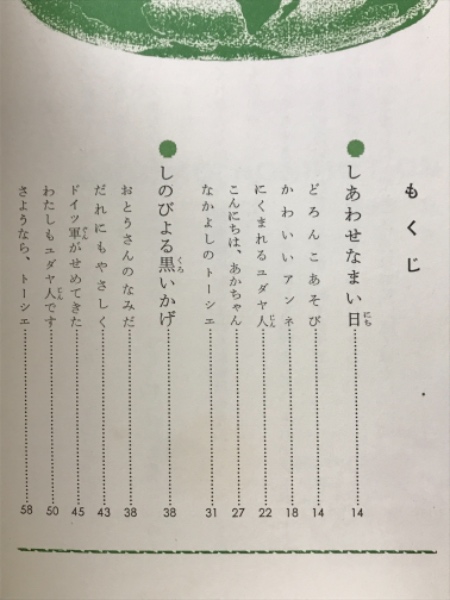 もくじ
しあわせなまい日にち 14
どろんこあそび 14
かわいいアンネ 18
にくまれるユダヤ人じん 22
こんにちは、あかちゃん 27
なかよしのトーシェ 31
しのびよる黒くろいかげ 38
おとうさんのなみだ 38
だれにもやさしく 43
ドイツ軍ぐんがせめてきた 45
わたしもユダヤ人じんです 50
さようなら、トーシェ 58